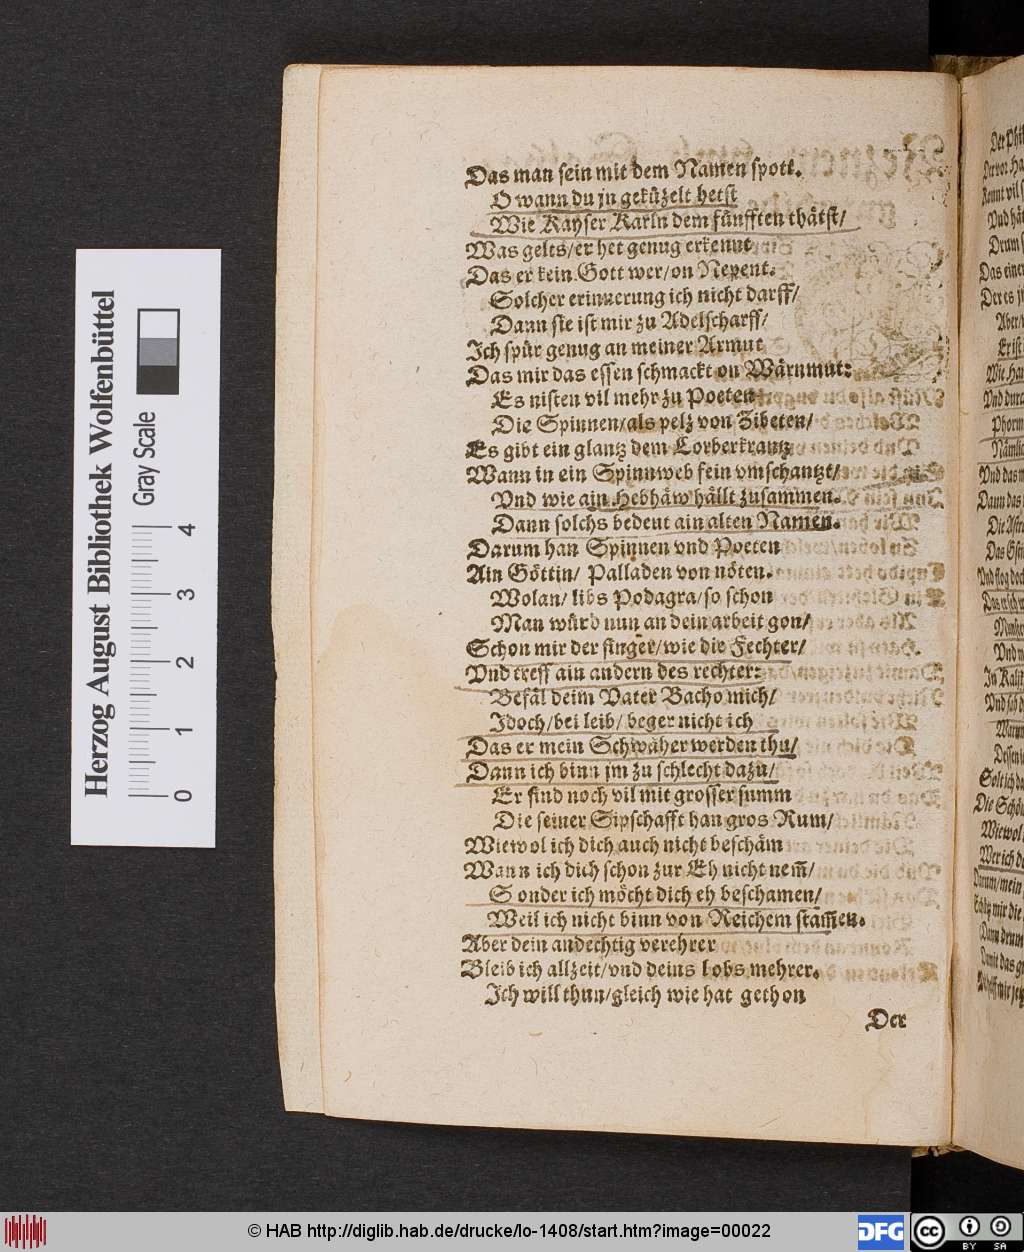 Das man sein mit dem Namen spott.
O wann du jn geküzelt hetst
Wie Kayser Karln dem fünfften thätst/
Was gelts/er het genug erkennt
Das er kein Gott wer/on Nepent.
Solcher erinnerung ich nicht darff/
Dann sie ist mir zu Adelscharff/
Ich spür genug an meiner Armut
Das mir das essen schmackt on Wärnmut:
Es nisten vil mehr zu Poeten
Die Spinnen/als pelz von Zibeten/
Es gibt ein glantz dem Lorberkrantz
Wann in ein Spinnweb fein vmschantzt/
Vnd wie ain Hebhäw hällt zusammen.
Dann solchs bedeut ain alten Namen.
Darum han Spinnen vnd Poeten
Ain Göttin/ Palladen von nöten.
Wolan/ libs Podagra/so schon
Man würd nun an dein arbeit gon/
Schon mir der finger/wie die Fechter/
Vnd treff ain andern des rechter:
Befäl deim Vater Bacho mich/
Idoch/bei leib/ beger nicht ich
Das er mein Schwäher werden thu/
Dann ich binn jm zu schlecht dazu/
Er find noch vil mit grosser summ
Die seiner Sipschafft han gros Rum/
Wiewol ich dich auch nicht beschäm
Wann ich dich schon zur Eh nicht nem̅/
Sonder ich möcht dich eh beschamen/
Weil ich nicht binn von Reichem stam̅en.
Aber dein andechtig verehrer
Bleib ich allzeit/vnd deins lobs mehrer.
Ich will thun/gleich wie hat gethon
Der
Herzog August Bibliothek Wolfenbüttel
Gray Scale
0 1 2 3 4
© HAB http://diglib.hab.de/drucke/lo-1408/start.htm?image=00022
DFG
cc BY SA